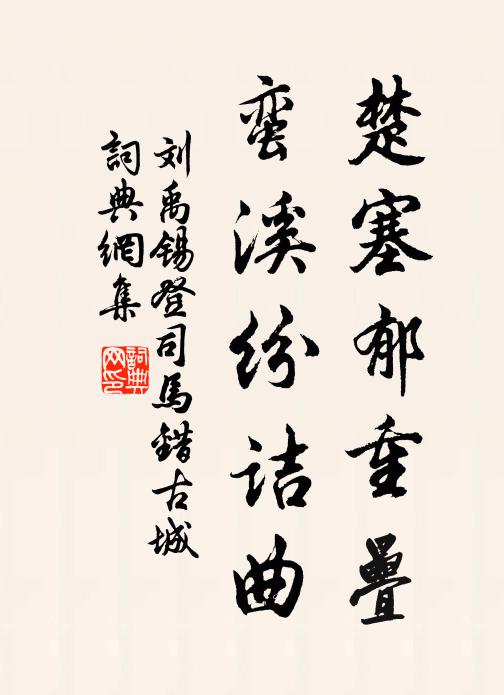 楚塞郁重疊
蛮溪纷诘曲
刘禹锡登司馬錯古城
詞典網集
詞典网印